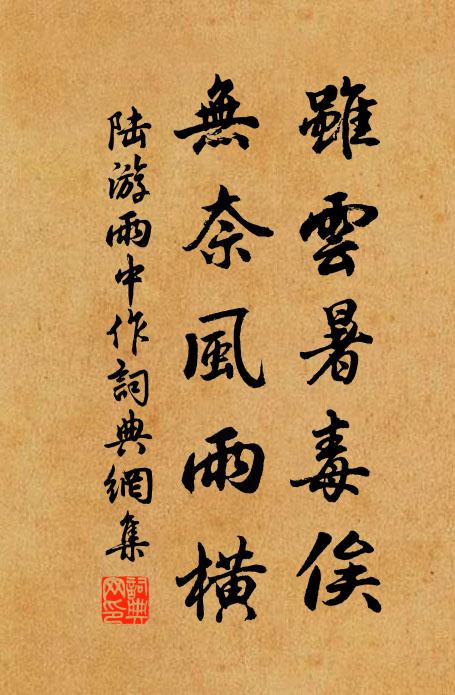 雖雲暑毒俟
無奈風雨橫
陆游雨中作詞典網集
詞典網印